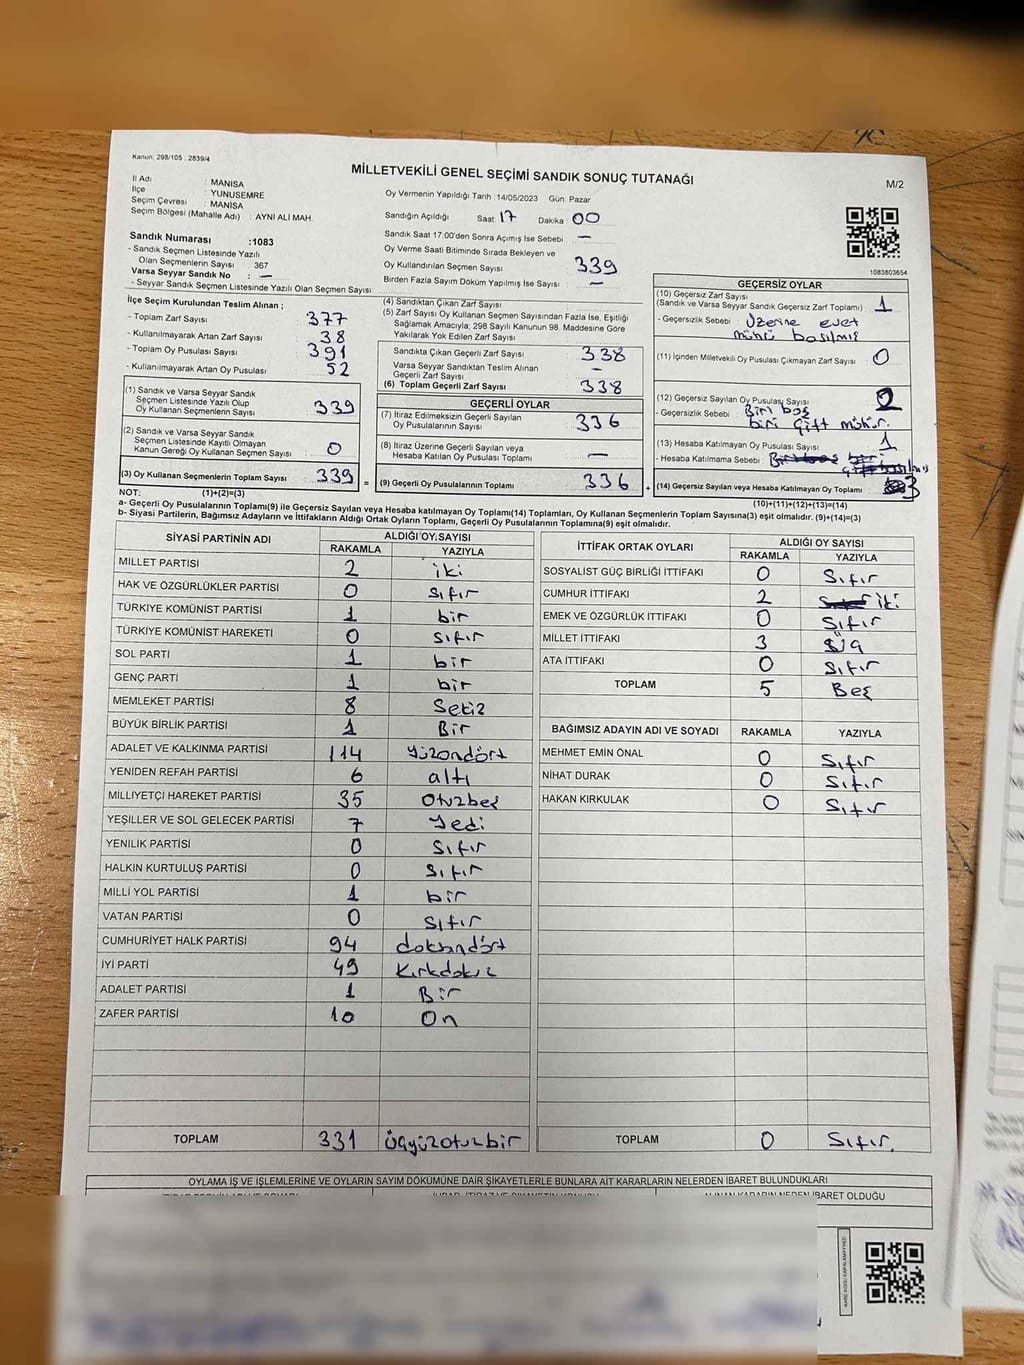 Kanun: 298/105 , 2839/4
MİLLETVEKİLİ GENEL SEÇİMİ SANDIK SONUÇ TUTANAĞI
M/2
İl Adı : MANİSA
İlçe : YUNUSEMRE
Seçim Çevresi : MANİSA
Seçim Bölgesi (Mahalle Adı) : AYNİ ALİ MAH.
Sandık Numarası :1083
- Sandık Seçmen Listesinde Yazılı
Olan Seçmenlerin Sayısı : 367
Varsa Seyyar Sandık No : —
- Seyyar Sandık Seçmen Listesinde Yazılı Olan Seçmen Sayısı:
Oy Vermenin Yapıldığı Tarih :14/05/2023 Gün: Pazar
Sandığın Açıldığı Saat 17 Dakika : 00
Sandık Saat 17:00'den Sonra Açılmış İse Sebebi : —
Oy Verme Saati Bitiminde Sırada Bekleyen ve
Oy Kullandırılan Seçmen Sayısı 339
Birden Fazla Sayım Döküm Yapılmış İse Sayısı : —
1083803654
İlçe Seçim Kurulundan Teslim Alınan ;
- Toplam Zarf Sayısı : 377
- Kullanılmayarak Artan Zarf Sayısı : 38
- Toplam Oy Pusulası Sayısı : 391
- Kullanılmayarak Artan Oy Pusulası : 52
(1) Sandık ve Varsa Seyyar Sandık
Seçmen Listesinde Yazılı Olup
Oy Kullanan Seçmenlerin Sayısı : 339
(2) Sandık ve Varsa Seyyar Sandık
Seçmen Listesinde Kayıtlı Olmayan
Kanun Gereği Oy Kullanan Seçmen Sayısı : 0
(3) Oy Kullanan Seçmenlerin Toplam Sayısı : 339 =
(4) Sandıktan Çıkan Zarf Sayısı :
(5) Zarf Sayısı Oy Kullanan Seçmen Sayısından Fazla İse, Eşitliği
Sağlamak Amacıyla; 298 Sayılı Kanunun 98. Maddesine Göre
Yakılarak Yok Edilen Zarf Sayısı :
Sandıkta Çıkan Geçerli Zarf Sayısı : 338
Varsa Seyyar Sandıktan Teslim Alınan
Geçerli Zarf Sayısı : —
(6) Toplam Geçerli Zarf Sayısı : 338
GEÇERLİ OYLAR
(7) İtiraz Edilmeksizin Geçerli Sayılan
Oy Pusulalarının Sayısı : 336
(8) İtiraz Üzerine Geçerli Sayılan veya
Hesaba Katılan Oy Pusulası Toplamı : —
(9) Geçerli Oy Pusulalarının Toplamı : 336 +
GEÇERSİZ OYLAR
(10) Geçersiz Zarf Sayısı
(Sandık ve Varsa Seyyar Sandık Geçersiz Zarf Toplamı) : 1
- Geçersizlik Sebebi : Üzerine evet
mühü basılmış
(11) İçinden Milletvekili Oy Pusulası Çıkmayan Zarf Sayısı : 0
(12) Geçersiz Sayılan Oy Pusulası Sayısı : 2
- Geçersizlik Sebebi : Biri boş
biri çift mühür.
(13) Hesaba Katılmayan Oy Pusulası Sayısı : 1
- Hesaba Katılmama Sebebi :
(14) Geçersiz Sayılan veya Hesaba Katılmayan Oy Toplamı : 3
NOT: (1)+(2)=(3) (10)+(11)+(12)+(13)=(14)
a- Geçerli Oy Pusulalarının Toplamı(9) ile Geçersiz Sayılan veya Hesaba katılmayan Oy Toplamı(14) Toplamları, Oy Kullanan Seçmenlerin Toplam Sayısına(3) eşit olmalıdır. (9)+(14)=(3)
b- Siyasi Partilerin, Bağımsız Adayların ve İttifakların Aldığı Ortak Oyların Toplamı, Geçerli Oy Pusulalarının Toplamına(9) eşit olmalıdır.
SİYASİ PARTİNİN ADI ALDIĞI OY SAYISI
RAKAMLA YAZIYLA
MİLLET PARTİSİ 2 iki
HAK VE ÖZGÜRLÜKLER PARTİSİ 0 sıfır
TÜRKİYE KOMÜNİST PARTİSİ 1 bir
TÜRKİYE KOMÜNİST HAREKETİ 0 sıfır
SOL PARTİ 1 bir
GENÇ PARTİ 1 bir
MEMLEKET PARTİSİ 8 Sekiz
BÜYÜK BİRLİK PARTİSİ 1 Bir
ADALET VE KALKINMA PARTİSİ 114 Yüzondört
YENİDEN REFAH PARTİSİ 6 altı
MİLLİYETÇİ HAREKET PARTİSİ 35 Otuzbeş
YEŞİLLER VE SOL GELECEK PARTİSİ 7 Yedi
YENİLİK PARTİSİ 0 Sıfır
HALKIN KURTULUŞ PARTİSİ 0 Sıfır
MİLLİ YOL PARTİSİ 1 bir
VATAN PARTİSİ 0 sıfır
CUMHURİYET HALK PARTİSİ 94 doksandört
İYİ PARTİ 49 Kırkdokuz
ADALET PARTİSİ 1 Bir
ZAFER PARTİSİ 10 On
TOPLAM 331 üçyüzotuzbir
İTTİFAK ORTAK OYLARI ALDIĞI OY SAYISI
RAKAMLA YAZIYLA
SOSYALİST GÜÇ BİRLİĞİ İTTİFAKI 0 Sıfır
CUMHUR İTTİFAKI 2 iki
EMEK VE ÖZGÜRLÜK İTTİFAKI 0 Sıfır
MİLLET İTTİFAKI 3 üç
ATA İTTİFAKI 0 Sıfır
TOPLAM 5 Beş
BAĞIMSIZ ADAYIN ADI VE SOYADI RAKAMLA YAZIYLA
MEHMET EMİN ÖNAL 0 Sıfır
NİHAT DURAK 0 Sıfır
HAKAN KIRKULAK 0 Sıfır
TOPLAM 0 Sıfır.
OYLAMA İŞ VE İŞLEMLERİNE VE OYLARIN SAYIM DÖKÜMÜNE DAİR ŞİKAYETLERLE BUNLARA AİT KARARLARIN NELERDEN İBARET BULUNDUKLARI
ALINAN KARARIN NEDEN İBARET OLDUĞU
KARE KODU KARALAMAYINIZ!